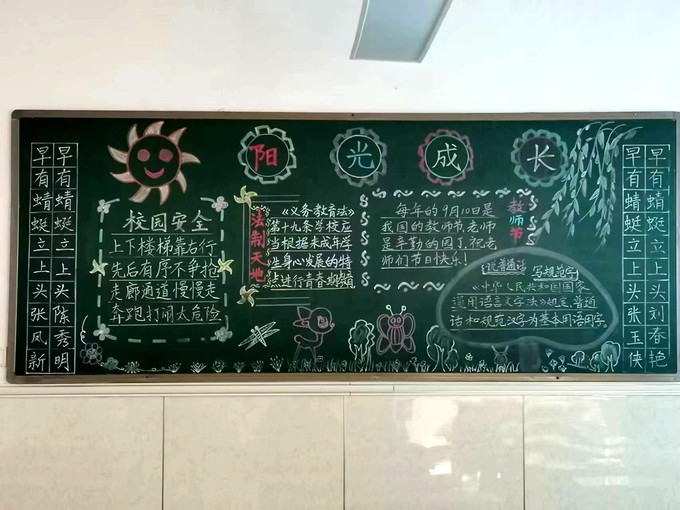 早有蜻蜓立上头张凤新
早有蜻蜓立上头陈秀明
阳光成长
校园安全
上下楼梯靠右行
先后有序不争抢
走廊通道慢慢走
奔跑打闹太危险
法制天地
《义务教育法》
第十九条学校应
当根据未成年学
生身心发展的特
点进行青春期
每年的9月10日是
我国的教师节,老师
是辛勤的园丁,祝老
师们节日快乐!
教师节
说普通话 写规范字
《中华人民共和国国家
通用语言文字法》规定:普通
话和规范汉字为基本用语用字。
早有蜻蜓立上头张玉侠
早有蜻蜓立上头刘春艳